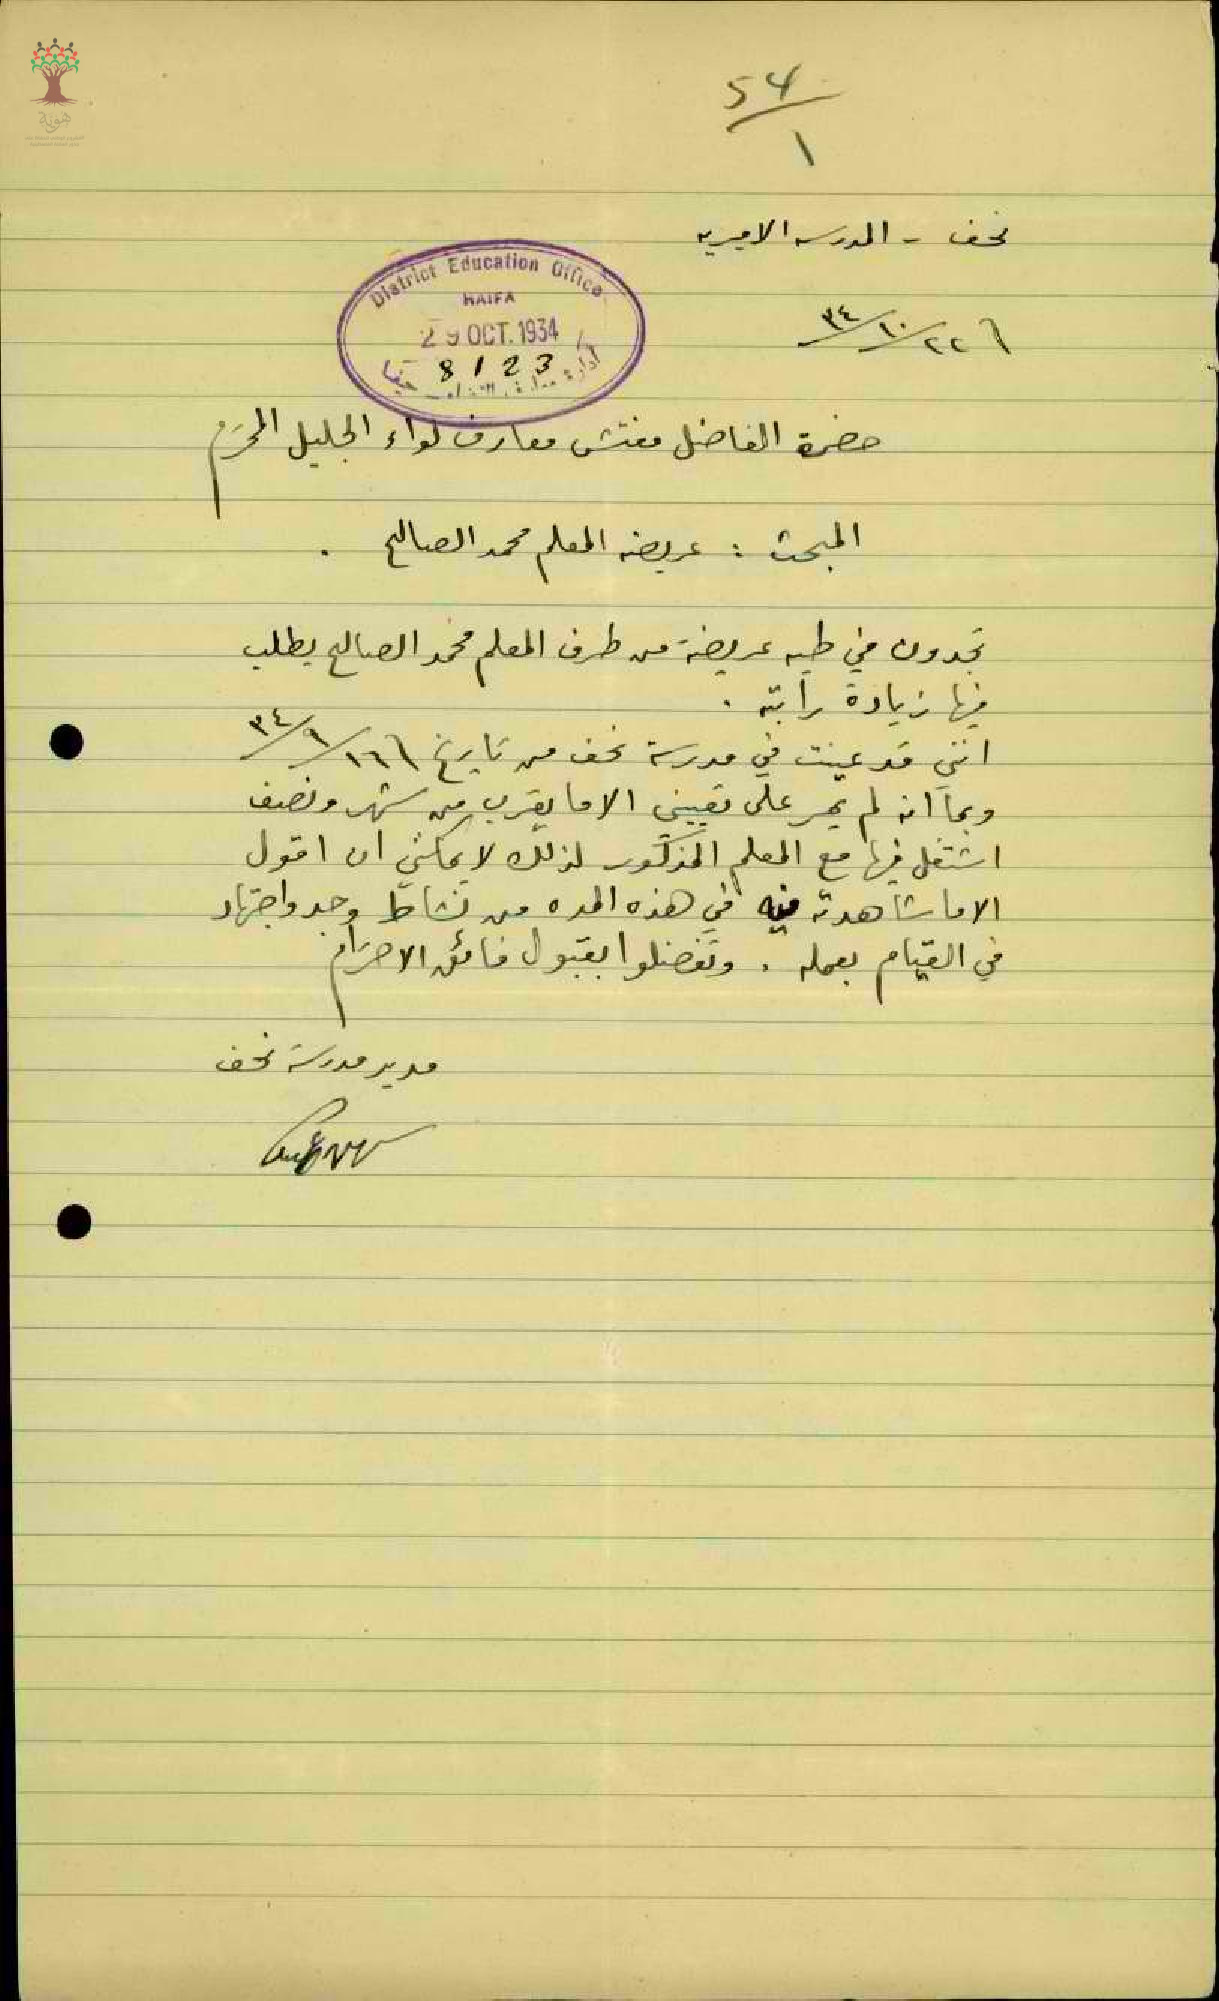 هوية
54
1
نحف - المدرسه الاميريه
٢٢/١٠/٣٤
District Education Office
HAIFA
29 OCT. 1934
8123
حيفا
حضرة الفاضل مفتش معارف لواء الجليل المحترم
المبحث : عريضه المعلم محمد الصالح .
تجدون في طيه عريضة من طرف المعلم محمد الصالح يطلب
فيها زيادة راتبه .
انني قد عينت في مدرسة نحف من تاريخ ١٦/٩/٣٤
وبما انه لم يمر على تعييني الا ما يقرب من شهر ونصف
اشتغل فيها مع المعلم المذكور لذلك لا يمكنني ان اقول
الا ما شاهدته فيه في هذه المده من نشاط وجد واجتهاد
في القيام بعمله . وتفضلوا بقبول فائق الاحترام
مدير مدرسة نحف